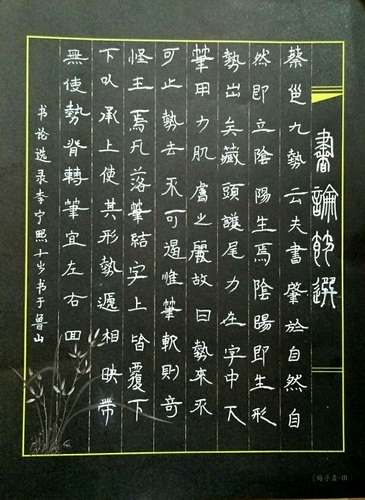 書論節選
蔡邕九勢云夫書肇於自然自
然即立陰陽生焉陰陽即生形
勢出矣藏頭護尾力在字中下
筆用力肌膚之麗故曰勢來不
可止勢去不可遏惟筆軟則奇
怪生焉凡落筆結字上皆覆下
下以承上使其形勢遞相映帶
無使勢背轉筆宜左右回
书论选录李宁熙十岁书于鲁山